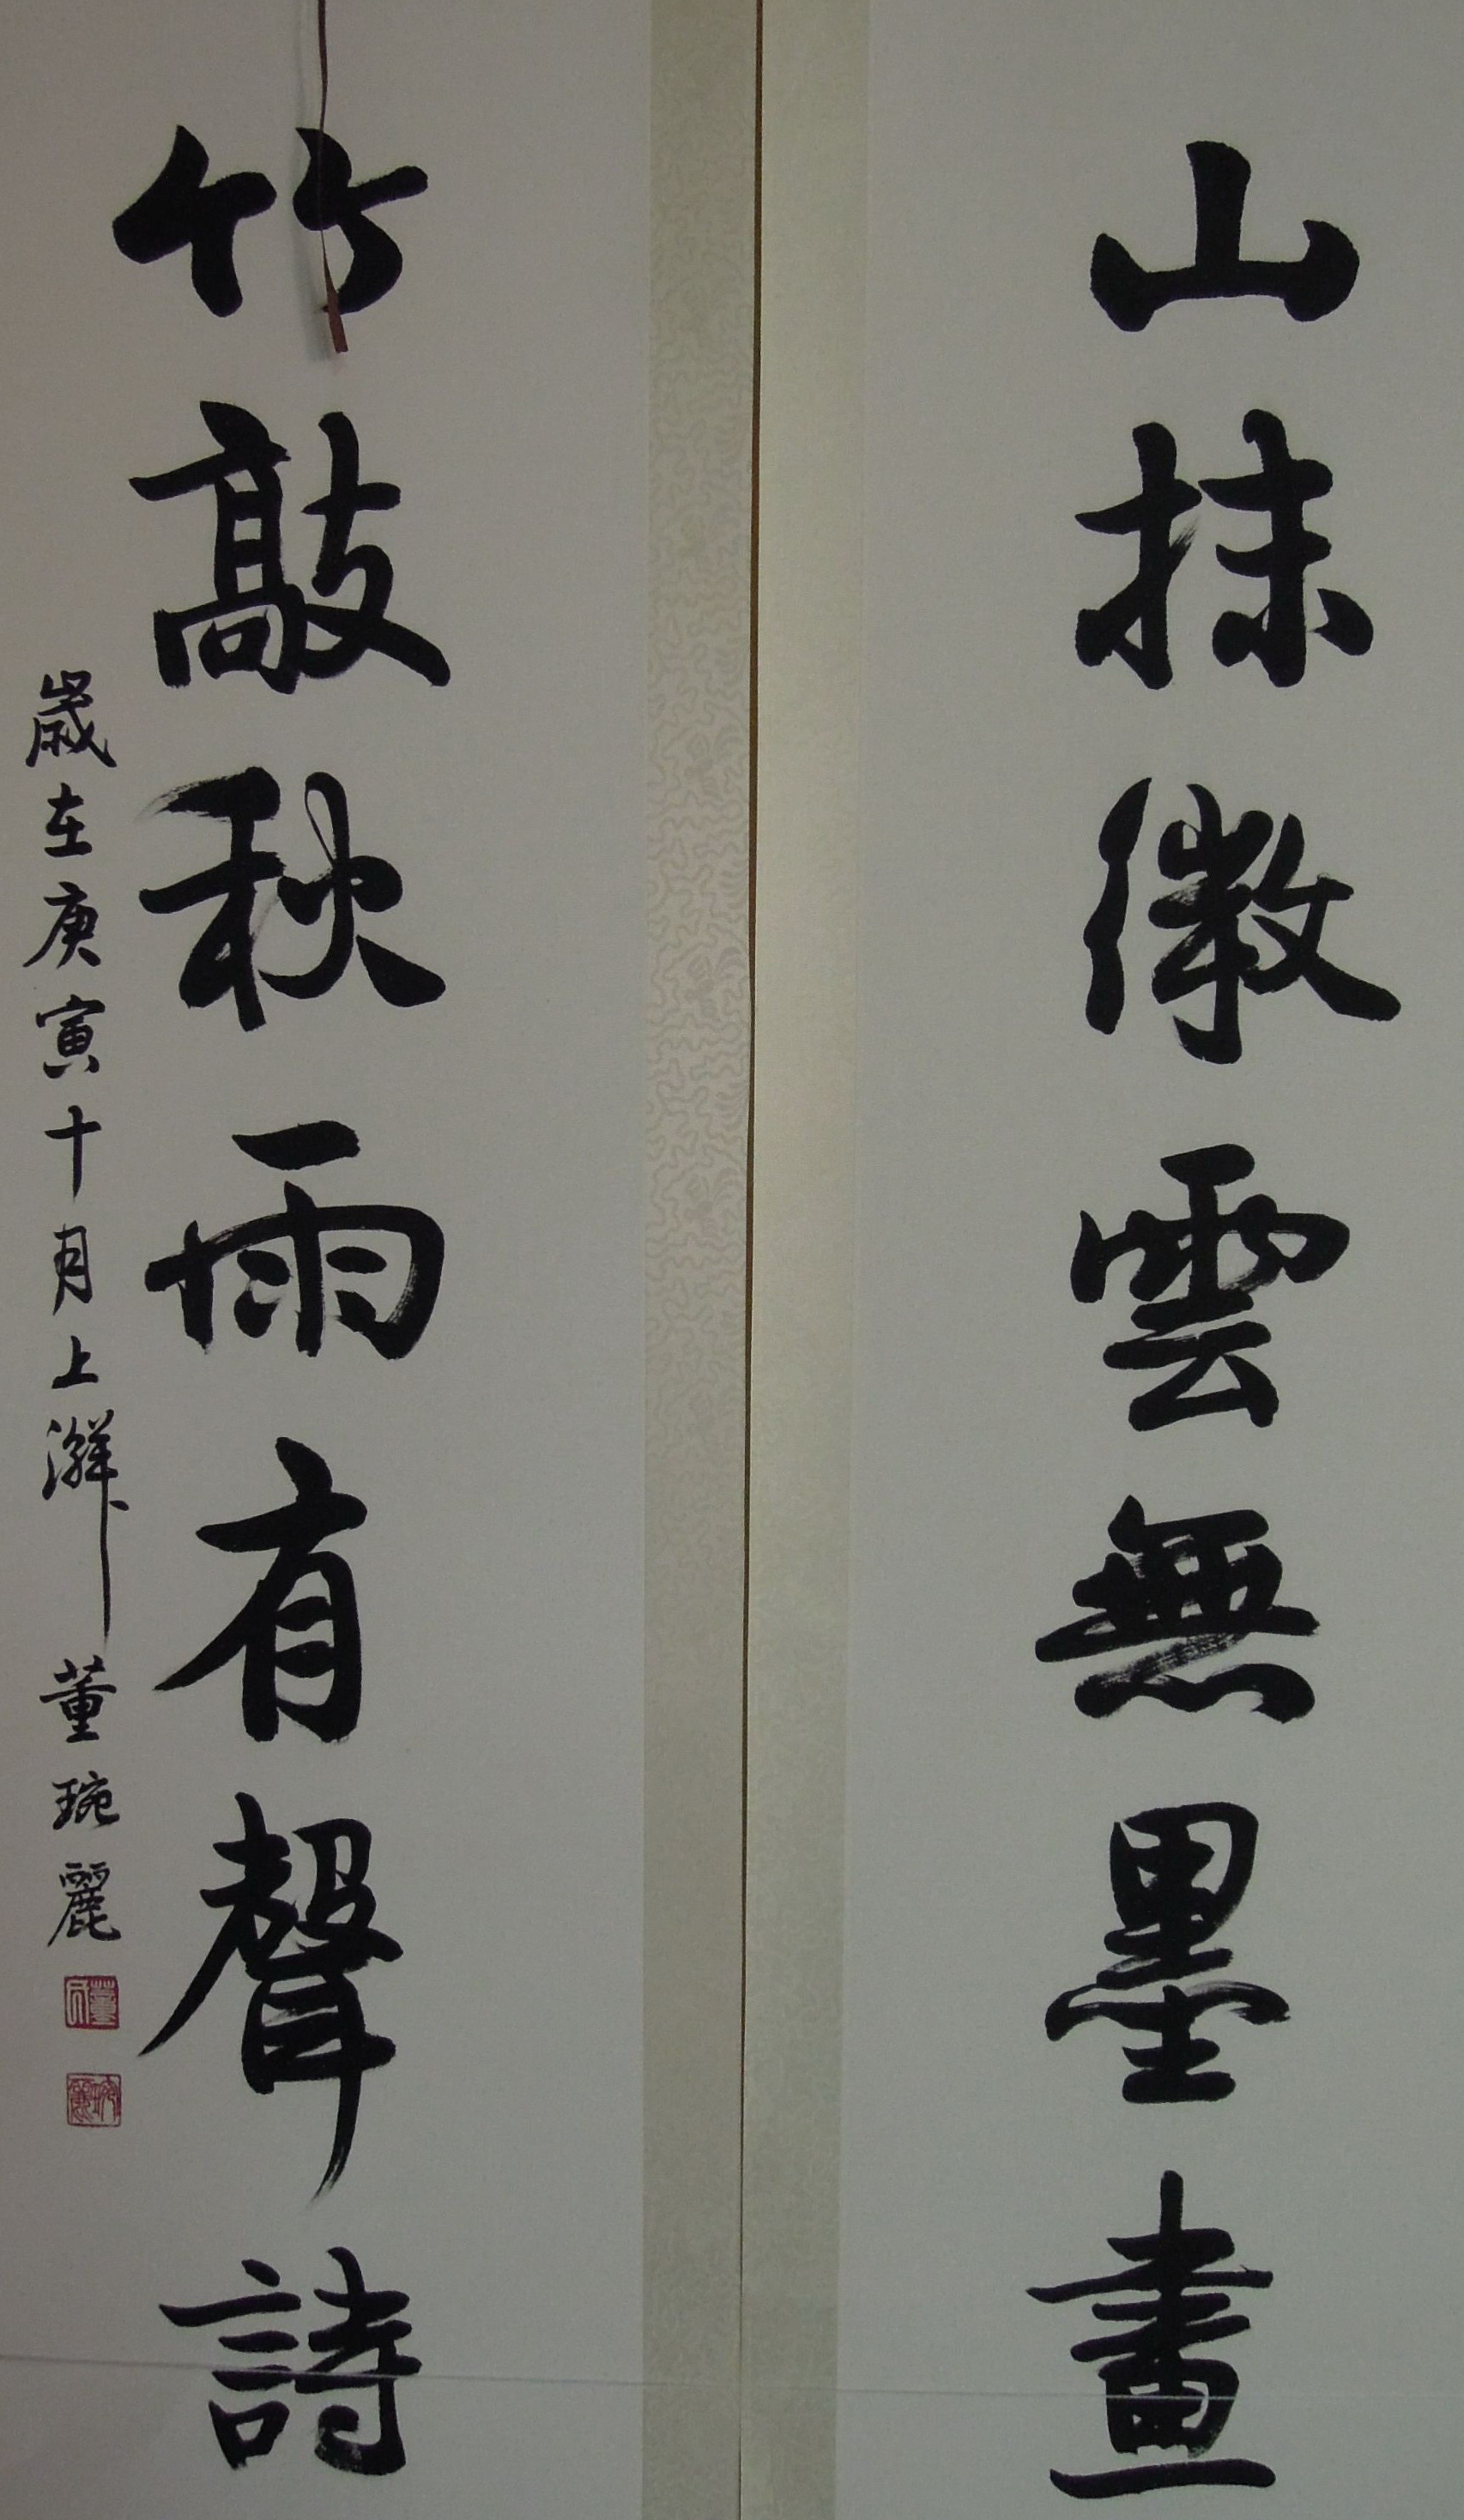 山抹微雲無墨畫
竹敲秋雨有聲詩
歲在庚寅十月上澣董琬麗